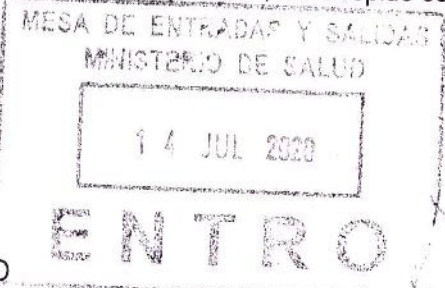 MESA DE ENTRADAS Y SALIDAS
MINISTERIO DE SALUD
14 JUL 2020
ENTRO